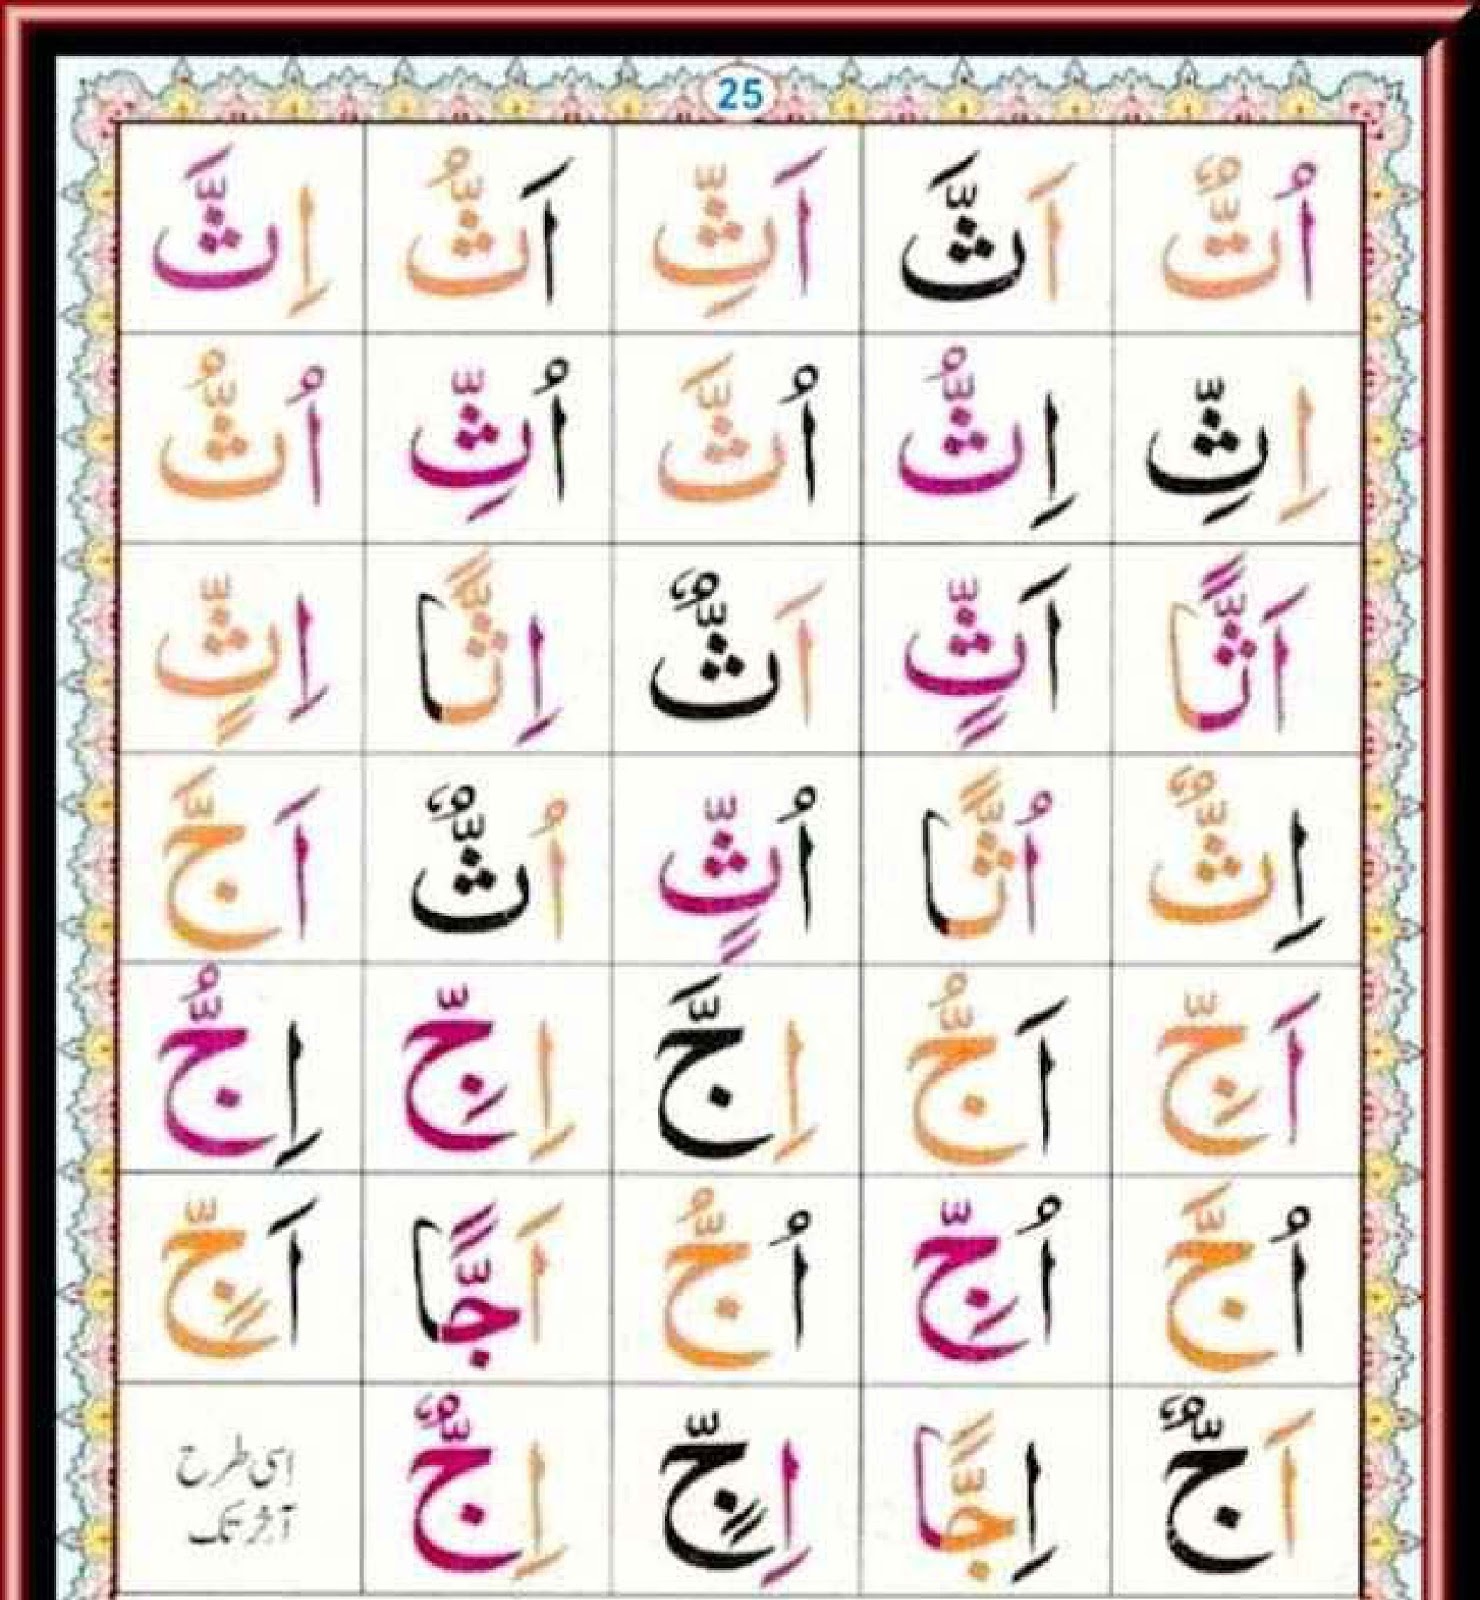 25
اُتٌّ اَثَّ اَثِّ اَثُّ اِثَّ
اِثِّ اِثُّ اُثَّ اُثِّ اُثُّ
اَثًّا اَثٍّ اَثٌّ اِثًّا اِثٍّ
اِثٌّ اُثًّا اُثٍّ اُثٌّ اَجَّ
اَجِّ اَجُّ اِجَّ اِجِّ اِجُّ
اُجَّ اُجِّ اُجُّ اَجًّا اَجٍّ
اَجٌّ اِجًّا اِجٍّ اِجٌّ اسی طرح
آخر تک